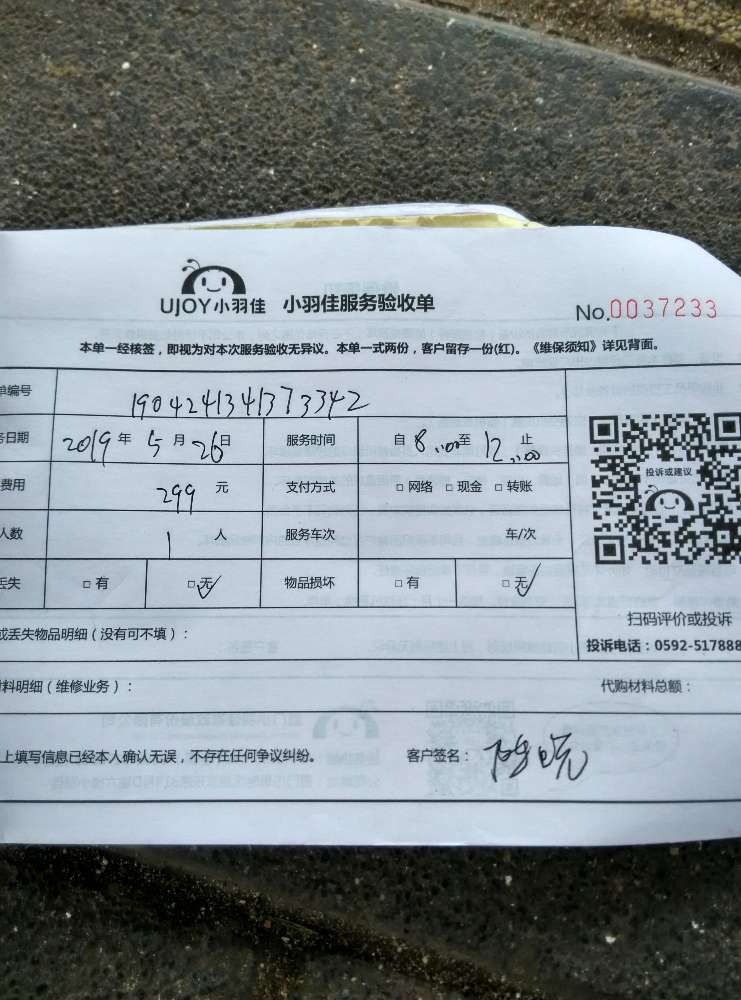 UJOY小羽佳 小羽佳服务验收单 No.0037233
本单一经核签，即视为对本次服务验收无异议。本单一式两份，客户留存一份(红)。《维保须知》详见背面。
单编号 190424134137342
日期 2019年5月26日 服务时间 自8:00至12:00止
费用 299元 支付方式 □网络 □现金 □转账
人数 1人 服务车次 车/次
丢失 □有 □无 物品损坏 □有 □无
投诉或建议
扫码评价或投诉
或丢失物品明细（没有可不填）：
投诉电话：0592-517888
料明细（维修业务）： 代购材料总额：
上填写信息已经本人确认无误，不存在任何争议纠纷。 客户签名：